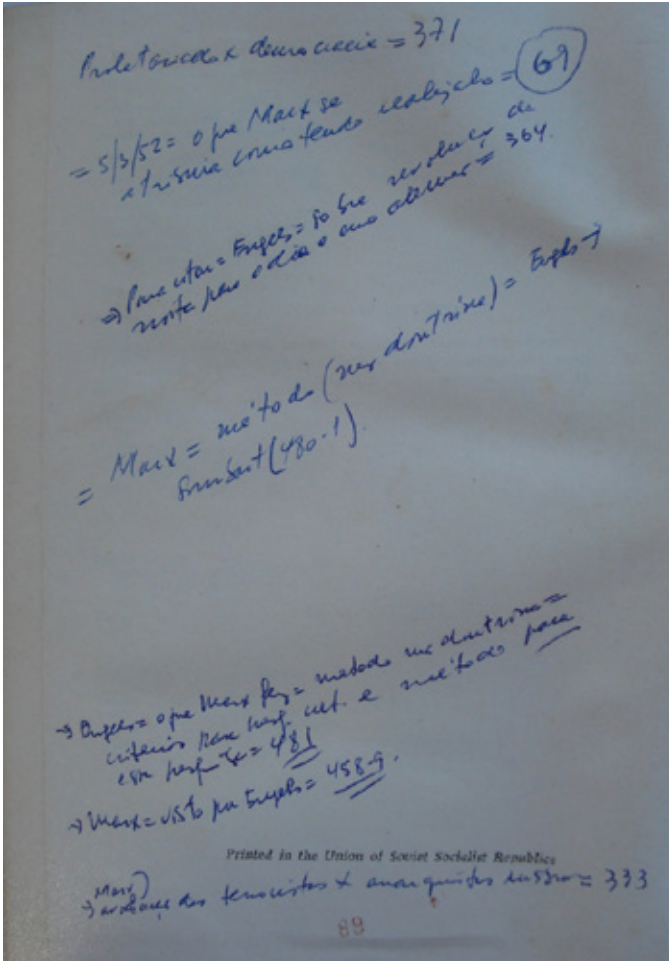 Proletariado x democracia = 371
= 5/3/52 = o que Marx se = 69
atribuia como tendo realizado
→ Para citar = Engels = sobre revolução da
noite para o dia o ano = 364.
= Marx = método (não doutrina) = Engels →
Sombart (480-1).
→ Engels = o que Marx fez = método não doutrina =
critérios para pesq. e método para
esta pesquisa = 481
→ Marx = visto por Engels = 458-9.
Printed in the Union of Soviet Socialist Republics
Marx)
→ dos terroristas x anarquistas russos = 333
89